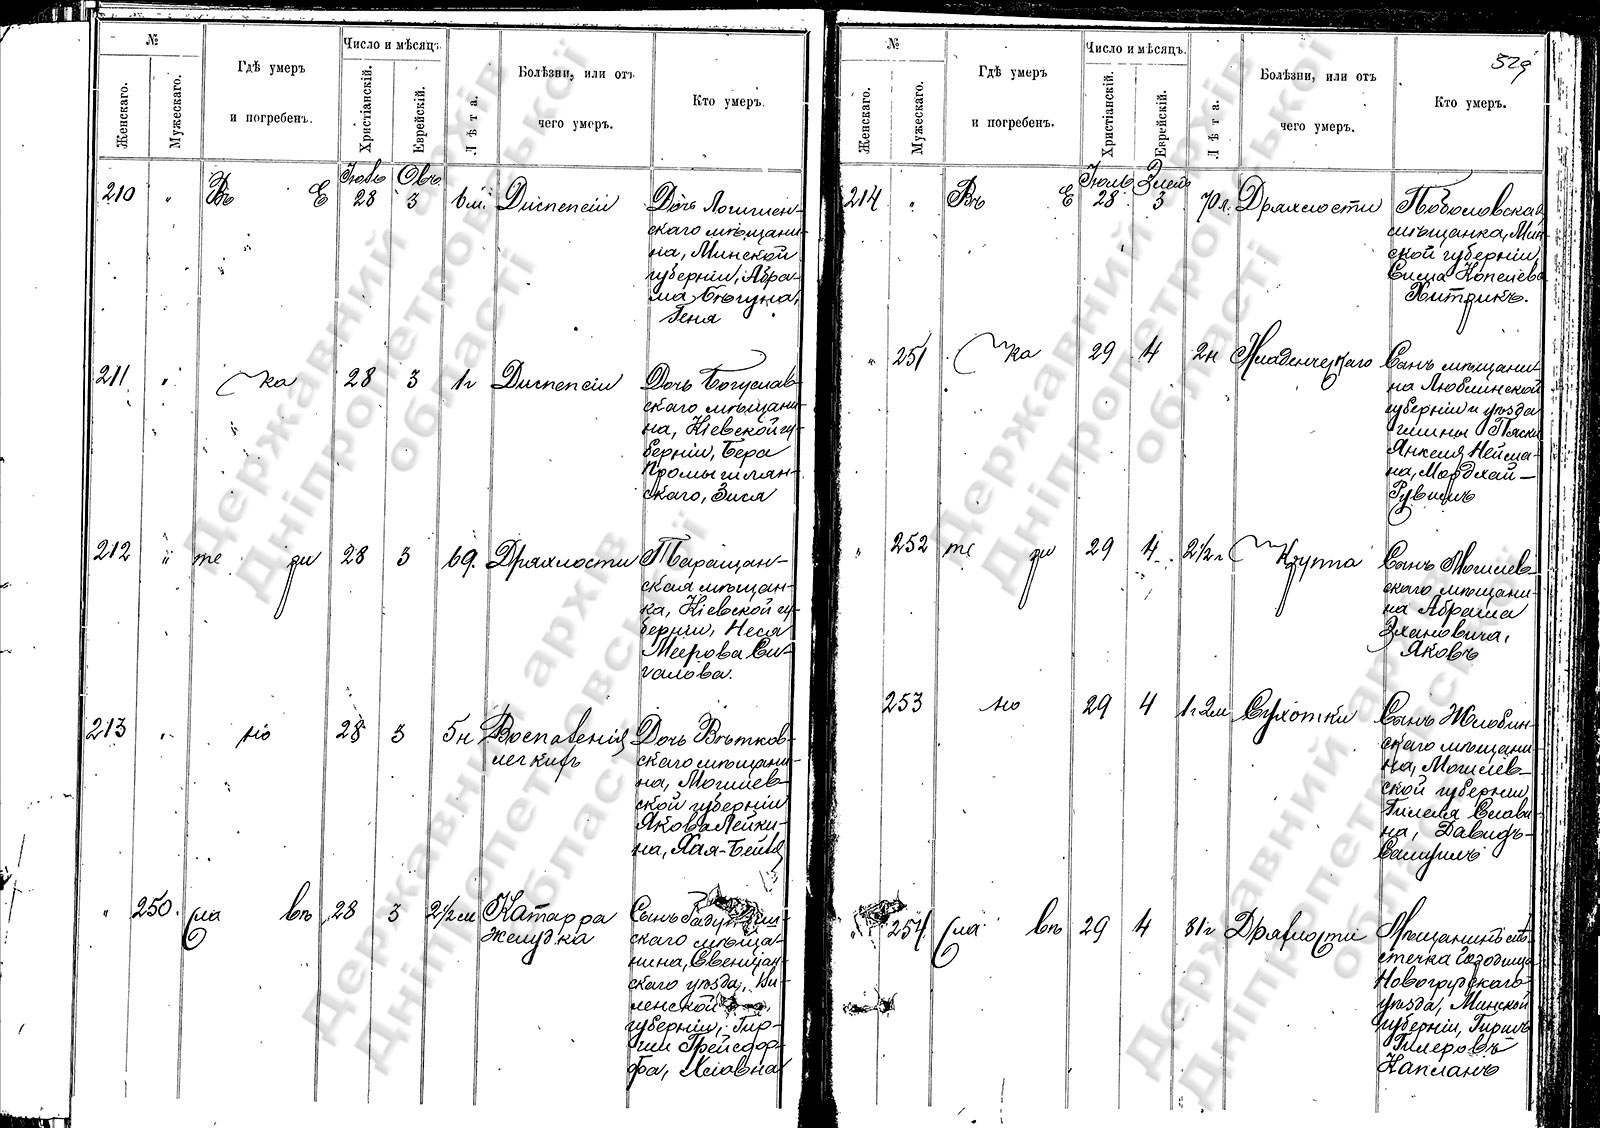 №
Женскаго.
Мужескаго.
Гдѣ умеръ
и погребенъ.
Число и мѣсяцъ.
Христіанскій.
Еврейскій.
Лѣта.
Болѣзни, или отъ
чего умеръ.
Кто умеръ.
210 " Въ Е 28 3 6 м. Диспепсіи
Дочь Логишин-
скаго мѣщани-
на, Минской
губерніи, Абра-
ма Бегуна,
Геня
211 " ка 28 3 1 г Диспепсіи
Дочь Богуслав-
скаго мѣщани-
на, Кіевской гу-
берніи, Бера
Промышлян-
скаго, Зися
212 " те ри 28 3 69. Дряхлости
Таращан-
ская мѣщан-
ка, Кіевской гу-
берніи, Неся
Меерова Си-
галова.
213 " но 28 3 5 н Воспаленія
легкихъ
Дочь Вѣтков-
скаго мѣщани-
на, Могилев-
ской губерніи
Якова Лейки-
на, Хая-Бейля
" 250. сла въ 28 3 2½ м Катарра
желудка
Сынъ
скаго мѣща-
нина, Свенцян-
скаго уѣзда, Ви-
ленской
губерніи, Гир-
ши Грейсдор-
фа,
№
Женскаго.
Мужескаго.
Гдѣ умеръ
и погребенъ.
Число и мѣсяцъ.
Христіанскій.
Еврейскій.
Лѣта.
Болѣзни, или отъ
чего умеръ.
Кто умеръ.
529
Іюль
214 " Въ Е 28 3 70 л. Дряхлости
Поболовская
мѣщанка, Мин-
ской губерніи,
Копелева
Хитрикъ.
" 251 ка 29 4 2 н Младенческаго
Сынъ мѣщани-
на Люблинской
губерніи и уѣзда
гмины Пяски
Анкеля Нейма-
на, Мордхай-
Рувимъ
" 252 те ри 29 4 2½ г Крупа
Сынъ Могилев-
скаго мѣщани-
на Абрама
Элановича,
Яковъ
253 но 29 4 1 г 2 м Сухотки
Сынъ Жлобин-
скаго мѣщани-
на, Могилев-
ской губерніи
Гилеля Слави-
на, Давидъ-
Самуилъ
" 254 сла въ 29 4 81 г Дряхлости
Мѣщанинъ мѣ-
стечка Городища
Новогрудскаго
уѣзда, Минской
губерніи, Гиршъ
Гилеровъ
Капланъ
Державний архів
Дніпропетровської
області
Державний архів
Дніпропетровської
області
Державний архів
Дніпропетровської
області
Державний архів
Дніпропетровської
області